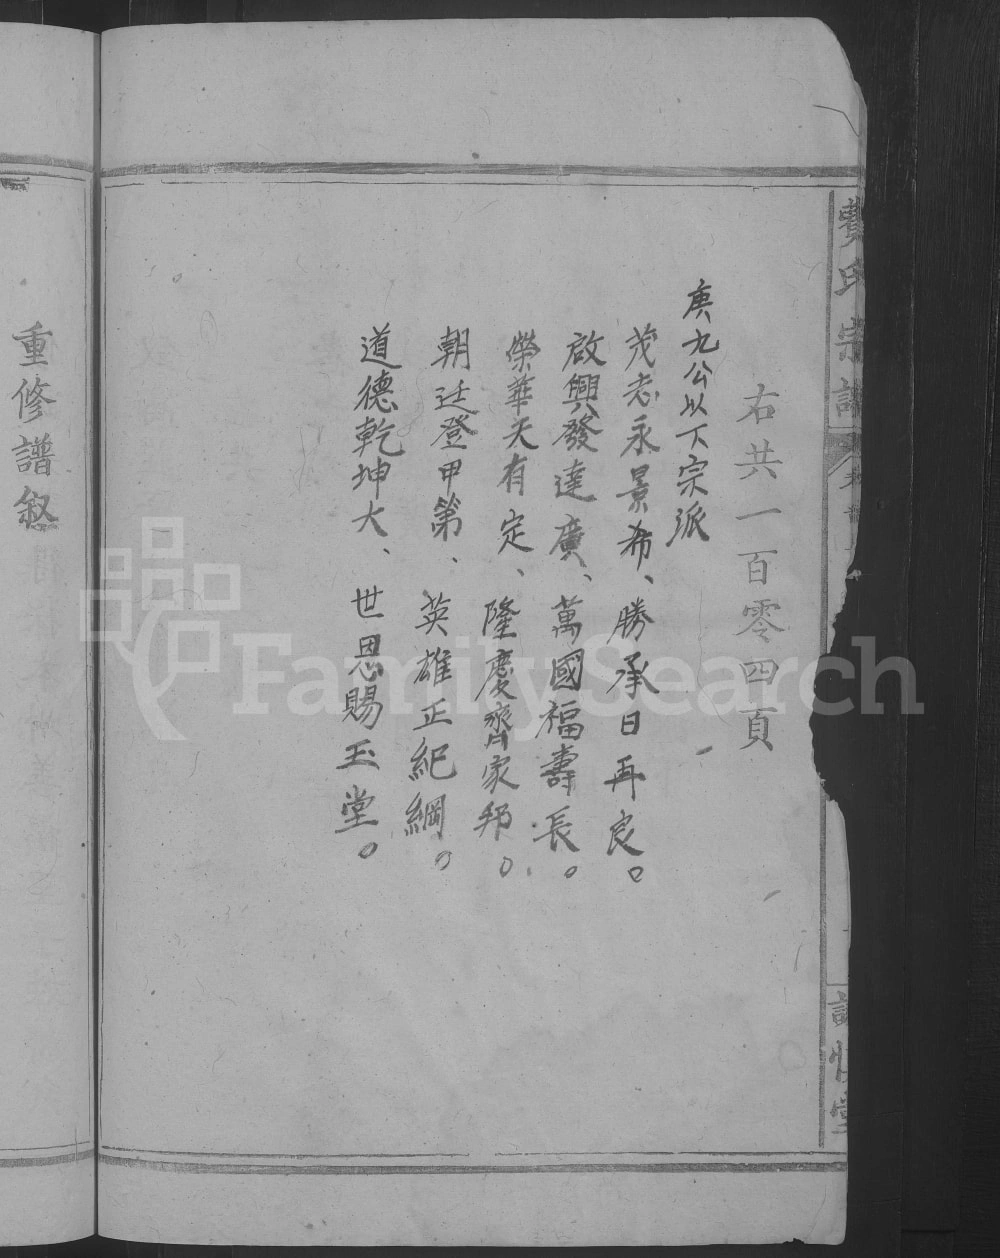 費氏宗譜
右共一百零四頁
庚九公以下宗派
茂志永景希、勝承日再良。
啟興發達廣、萬國福壽長。
榮華天有定、隆慶齊家邦。
朝廷登甲第、英雄正紀綱。
道德乾坤大、世恩賜玉堂。
重修譜叙
FamilySearch